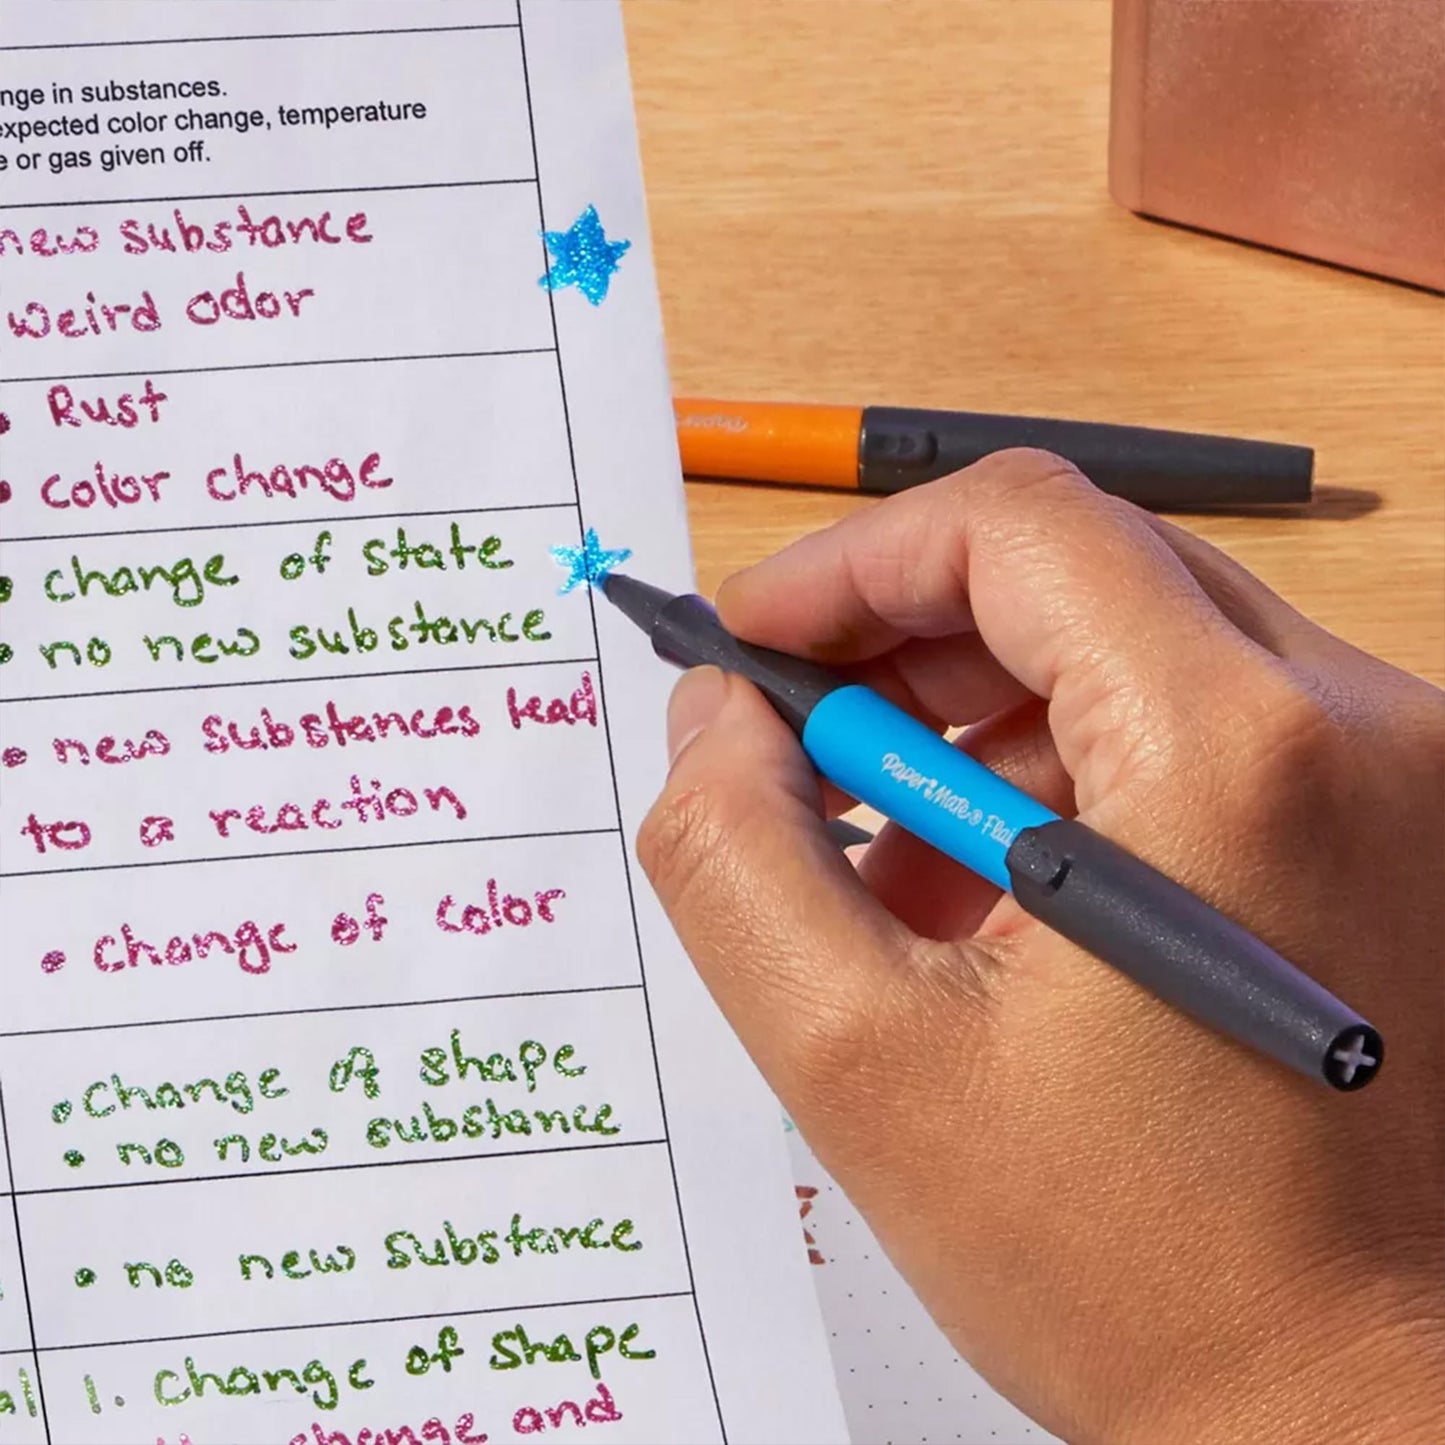 nge in substances.
expected color change, temperature
e or gas given off.
new substance
weird odor
• Rust
• color change
• change of state
• no new substance
• new substances lead
to a reaction
• change of color
• change of shape
• no new substance
• no new substance
al 1. change of shape
change and
Paper Mate® Flai
Paper